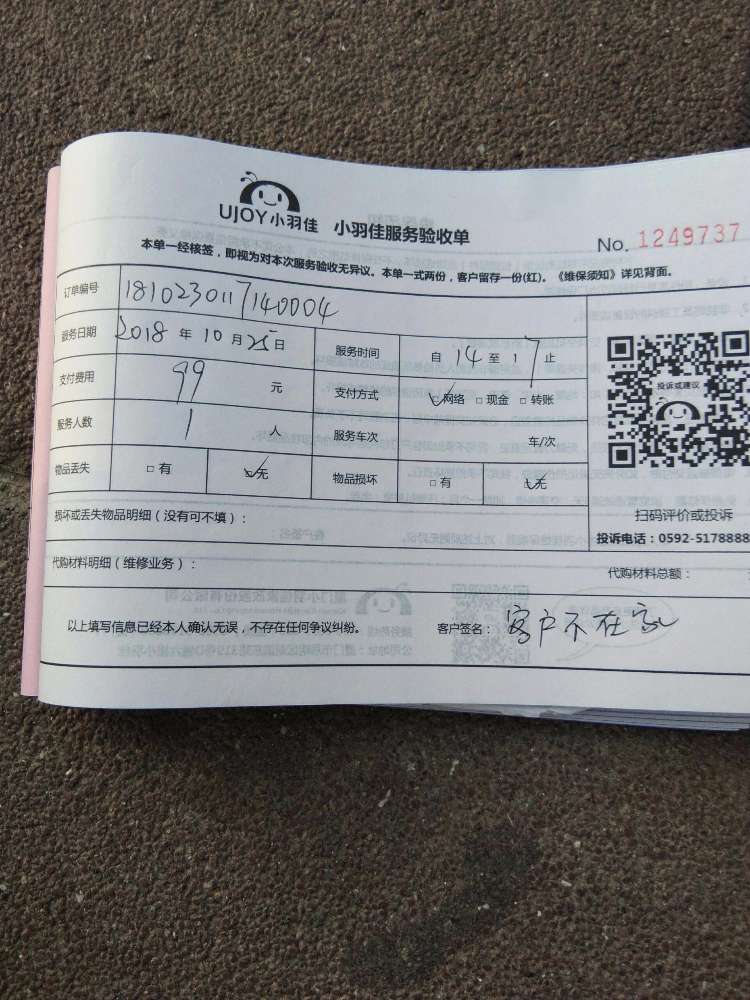 UJOY小羽佳 小羽佳服务验收单
No. 1249737
本单一经核签，即视为对本次服务验收无异议。本单一式两份，客户留存一份(红)。《维保须知》详见背面。
订单编号 1810230117140004
服务日期 2018 年 10 月 25 日 服务时间 自 14 至 17 止
支付费用 99 元 支付方式 网络 □ 现金 □ 转账
投诉或建议
服务人数 1 人 服务车次 车/次
物品丢失 □ 有 无 物品损坏 □ 有 无
损坏或丢失物品明细（没有可不填）：
扫码评价或投诉
投诉电话：0592-5178888
代购材料明细（维修业务）：
代购材料总额：
以上填写信息已经本人确认无误，不存在任何争议纠纷。 客户签名： 客户不在家